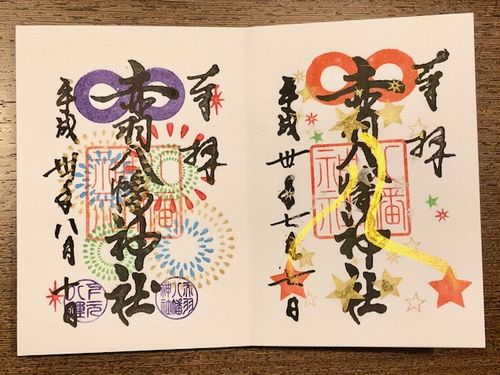 奉拝
赤羽八幡神社
八幡神社
平成卅年七月七日
奉拝
赤羽八幡神社
八幡神社
平成卅年八月十日
赤羽八幡神社